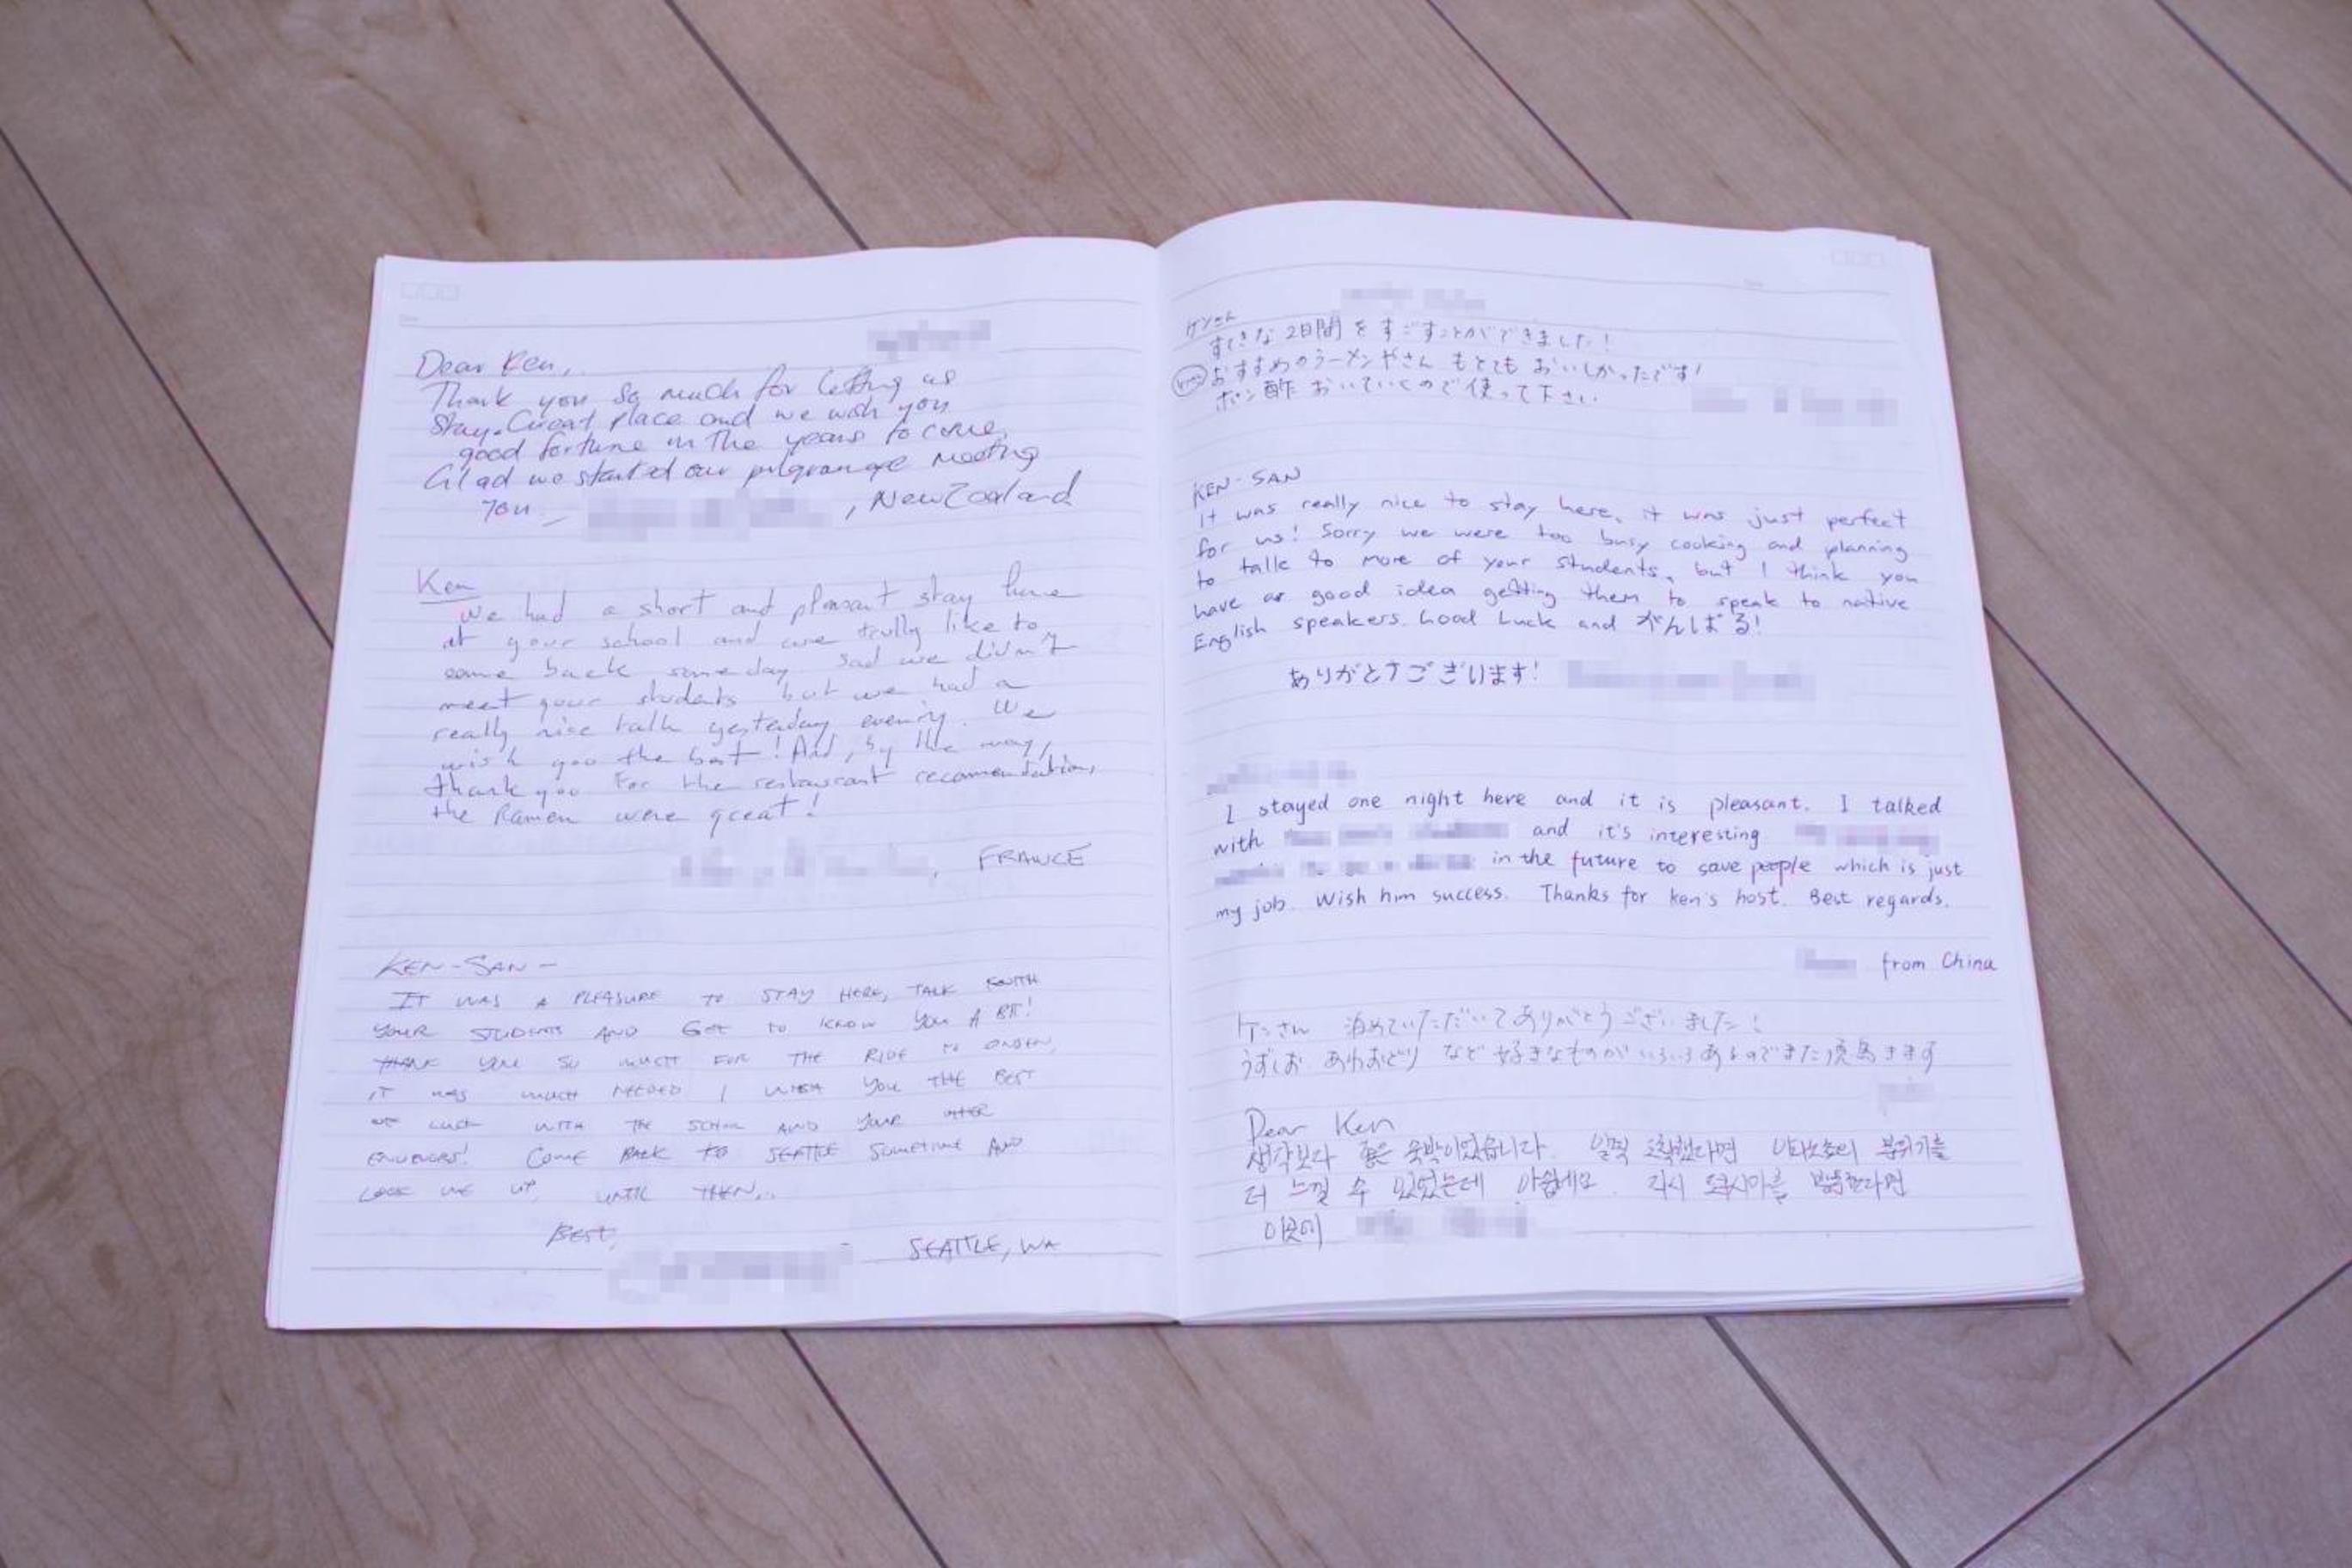 Dear Ken,
Thank you so much for letting us
stay. Great place and we wish you
good fortune in the years to come,
Glad we started our pilgramage meeting
you
, New Zealand
Ken
we had a short and pleasant stay here
at your school and we trully like to
come back someday sad we didn't
meet your students but we had a
really nice talk yesterday evening. We
wish you the best! And, by the way,
thank you for the restaurant recomendation,
the Ramen were great!
, FRANCE
KEN-SAN-
IT WAS A PLEASURE TO STAY HERE, TALK WITH
YOUR STUDENTS AND GET TO KNOW YOU A BIT!
THANK YOU SO MUCH FOR THE RIDE TO ONSEN,
IT WAS MUCH NEEDED I WISH YOU THE BEST
OF LUCK WITH THE SCHOOL AND YOUR OTHER
COME BACK TO SEATTLE SOMETIME AND
LOOK ME UP, UNTIL THEN...
BEST,
SEATTLE, WA
ケンさん
すてきな2日間をすごすことができました!
おすすめのラーメンやさん もとても おいしかったです!
ポン酢 おいていくので使って下さい
KEN-SAN
It was really nice to stay here, it was just perfect
for us! Sorry we were too busy cooking and planning
to talk to more of your students, but I think you
have a good idea getting them to speak to native
English speakers. Good Luck and がんばる!
ありがとうございます!
I stayed one night here and it is pleasant. I talked
with and it's interesting
in the future to save people which is just
my job. Wish him success. Thanks for ken's host. Best regards.
from China
ケンさん 泊めていただいてありがとうございました!
うずしお あわおどり など 好きなものがいろいろあるのでまた徳島きます
Dear Ken
생각보다 좋은 숙박이었습니다. 일찍 도착했다면 분위기를
더 느낄 수 있었는데 아쉽네요. 다시 도쿠시마를 방문한다면
이곳에